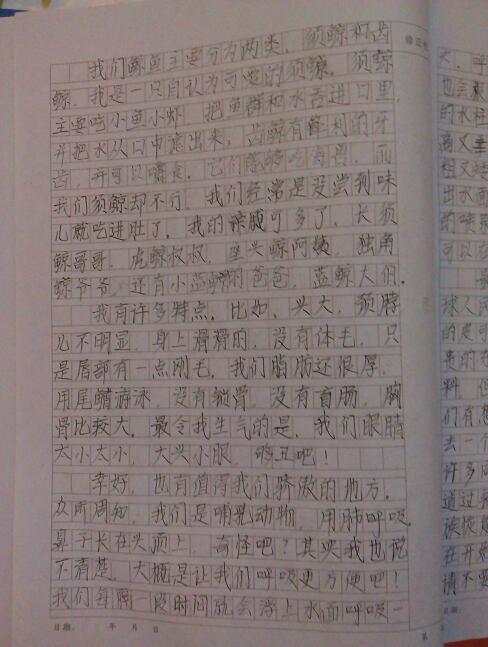 我们鲸鱼主要分为两类，须鲸和齿
鲸。我是一只自认为可爱的须鲸。须鲸
主要吃小鱼小虾，把鱼群和水吞进口里，
并把水从口中滤出来，齿鲸有锋利的牙
齿，并可以嚼食，它们能够吃海兽。而
我们须鲸却不行，我们经常是没尝到味
儿就吃进肚了。我的亲戚可多了，长须
鲸哥哥，虎鲸叔叔，座头鲸阿姨，独角
鲸爷爷，还有小蓝鲸的爸爸，蓝鲸大伯。
我有许多特点。比如，头大，颈脖
儿不明显，身上滑滑的，没有体毛，只
是唇部有一点刚毛，我们脂肪还很厚，
用尾鳍游泳，没有锁骨，没有盲肠，胸
骨比较大。最令我生气的是，我们眼睛
太小太小，大头小眼，够丑吧！
幸好，也有值得我们骄傲的地方，
众所周知，我们是哺乳动物，用肺呼吸，
鼻子长在头顶上，奇怪吧？其实我也说
不清楚，大概是让我们呼吸更方便吧！
我们每隔一段时间就会浮上水面呼吸一
日期： 年 月 日
第
大，呼
也会
的水柱
高又
粗又
出水面
的喷
可以
球人
的是可
贵的
料，但
们有
去一个
许多
通过
在开
请不要
日期：